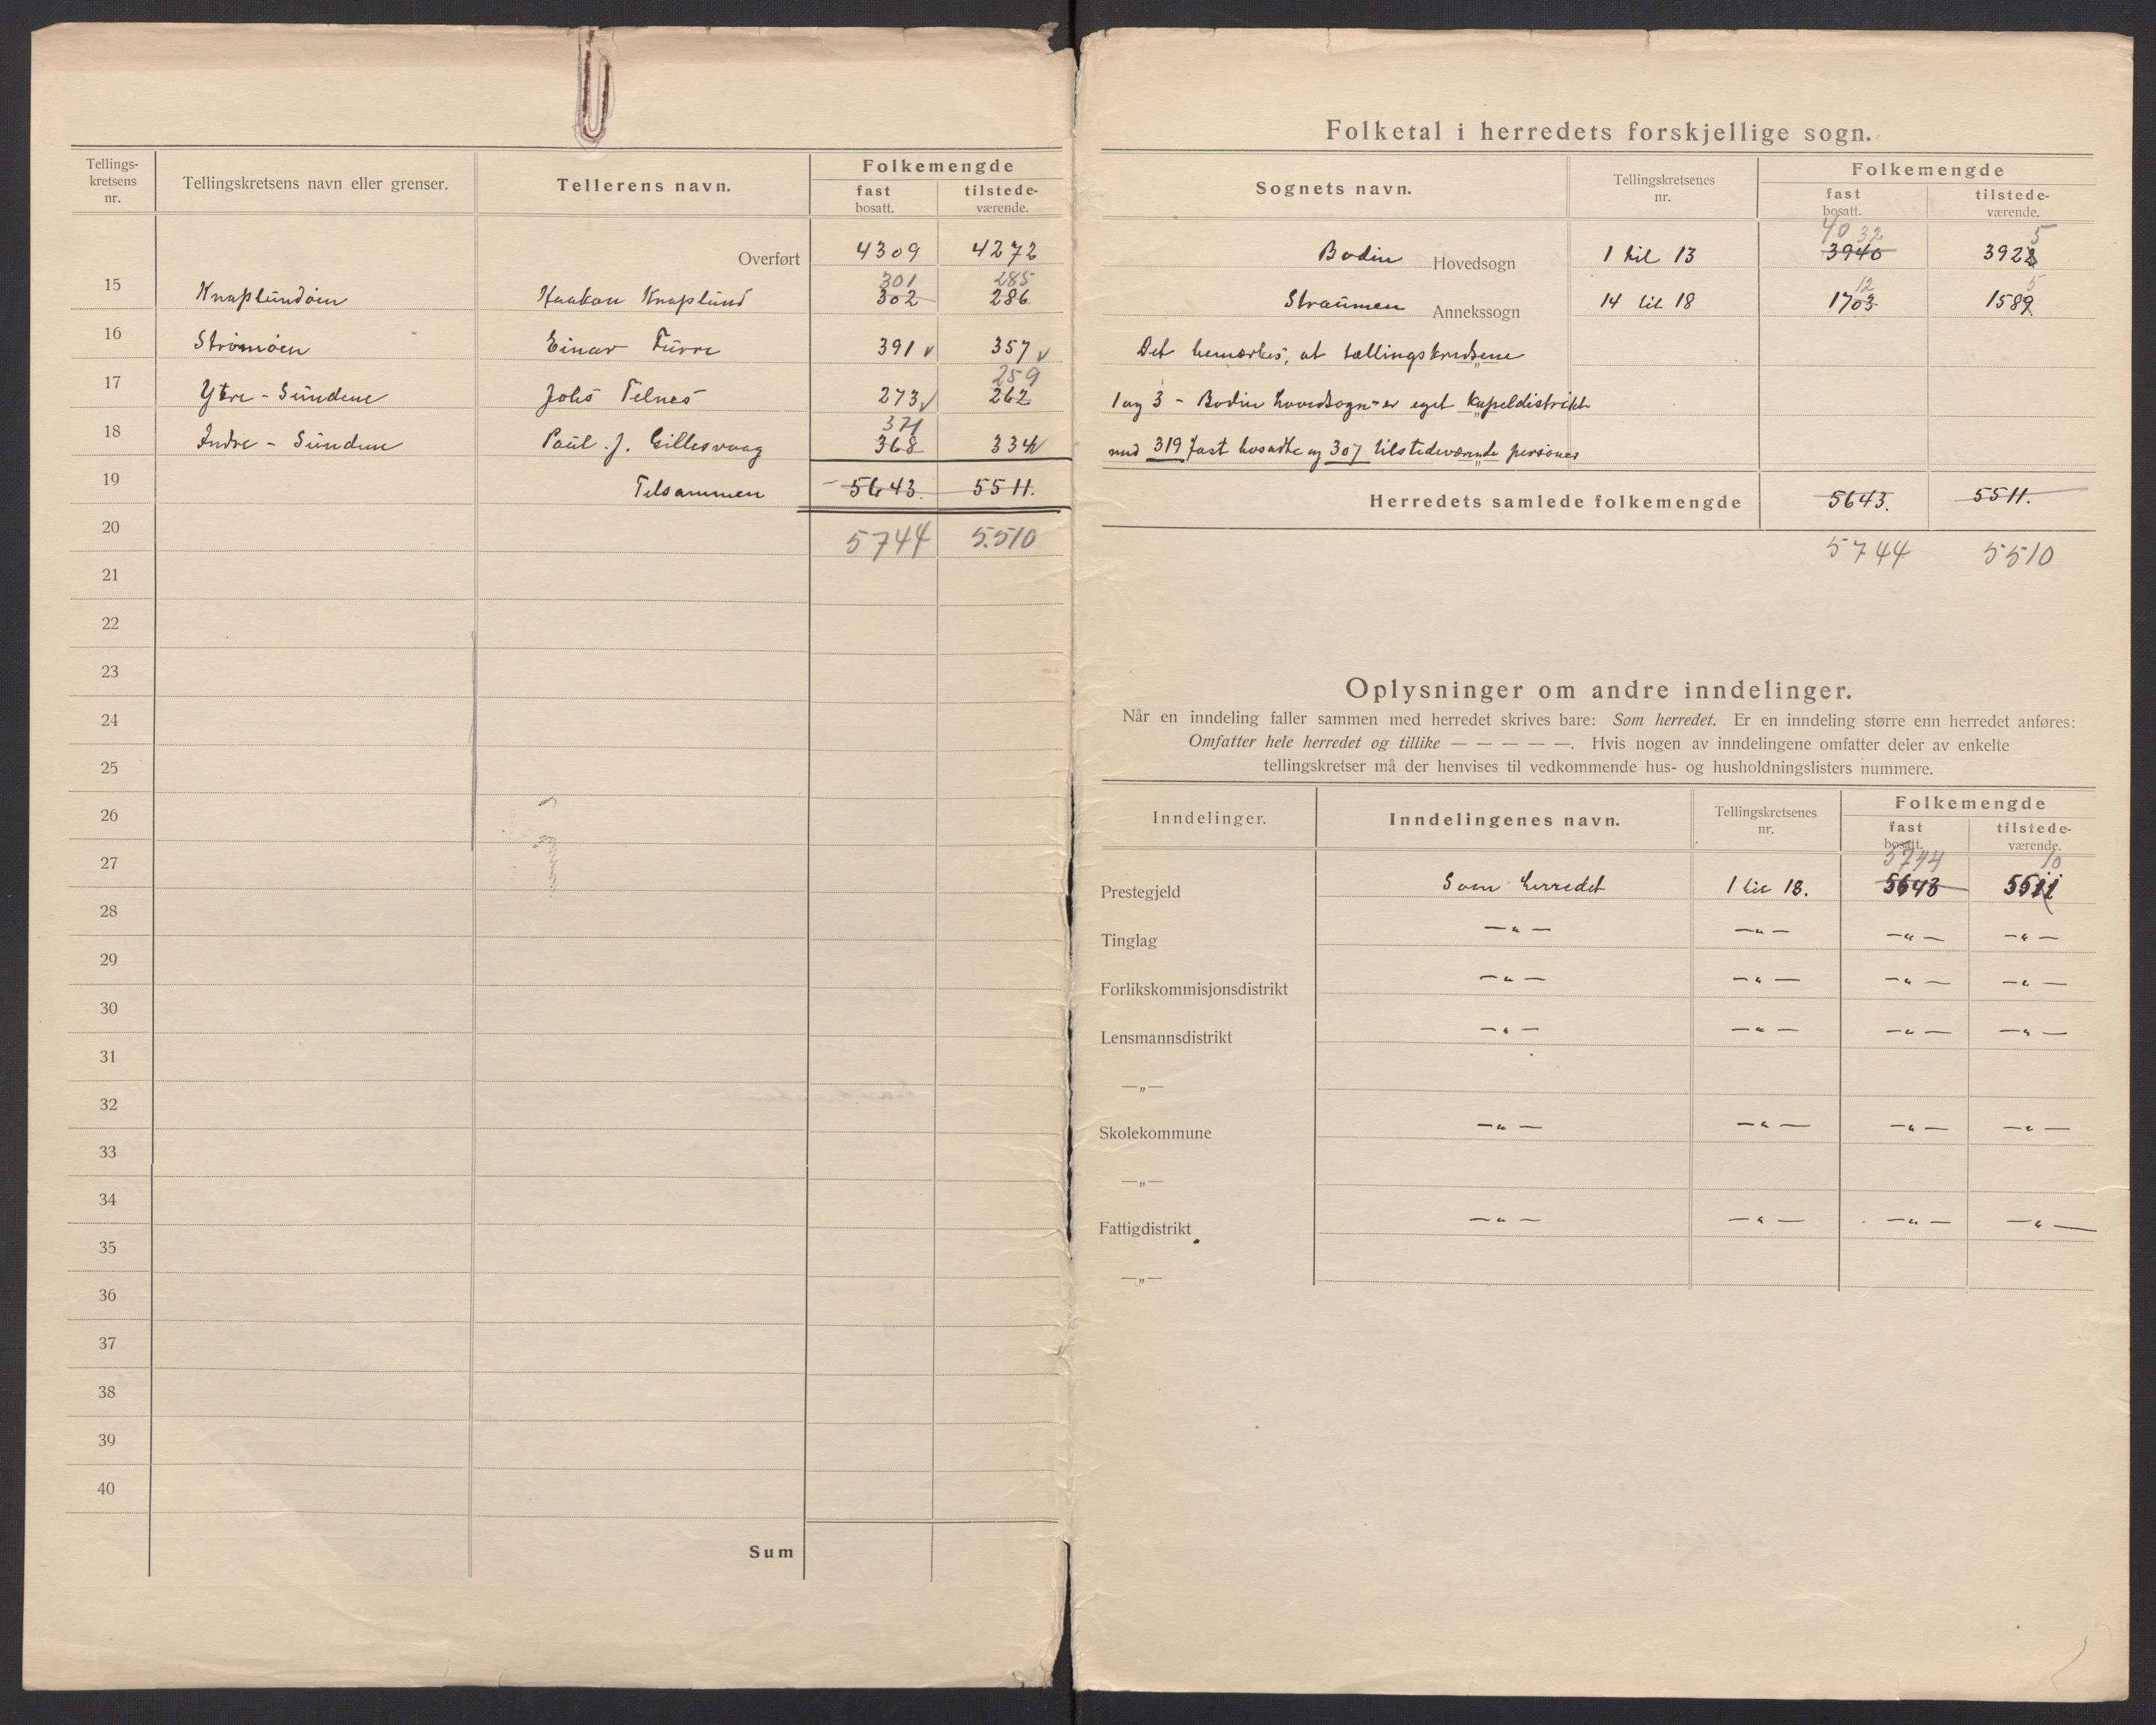 Tellings-
kretsens
nr.
Tellingskretsens navn eller grenser.
Tellerens navn.
Folkemengde
fast
bosatt.
tilstede-
værende.
Overført 4309 4272
301 285
15 Knaplundøen Haakon Knaplund 302 286
16 Strömöen Einar Furre 391 v 357 v
259
17 Ytre - Sundene Johs Telnes 273 v 262
371
18 Indre - Sundene Paul. J. Gillesvaag 368 334 v
19 Tilsammen 5643. 5511.
20 5744 5.510
21
22
23
24
25
26
27
28
29
30
31
32
33
34
35
36
37
38
39
40
Sum
Folketal i herredets forskjellige sogn.
Sognets navn.
Tellingskretsenes
nr.
Folkemengde
fast
bosatt.
tilstede-
værende.
4032 5
Bodin Hovedsogn 1 til 13 3940 3922
12 5
Straumen Annekssogn 14 til 18 1703 1589
Det bemærkes, at tællingskredsene
1 og 3 - Bodin hovedsogn - er eget kapeldistrikt
med 319 fast bosatte og 307 tilstedeværende personer
Herredets samlede folkemengde 5643. 5511.
5744 5510
Oplysninger om andre inndelinger.
Når en inndeling faller sammen med herredet skrives bare: Som herredet. Er en inndeling større enn herredet anføres:
Omfatter hele herredet og tillike — — — — —. Hvis nogen av inndelingene omfatter deler av enkelte
tellingskretser må der henvises til vedkommende hus- og husholdningslisters nummere.
Inndelinger.
Inndelingenes navn.
Tellingskretsenes
nr.
Folkemengde
fast
bosatt.
tilstede-
værende.
5744 10
Prestegjeld Som herredet 1 til 18. 5643 5511
Tinglag —"— —"— —"— —"—
Forlikskommisjonsdistrikt —"— —"— —"— —"—
Lensmannsdistrikt —"— —"— —"— —"—
—„—
Skolekommune —"— —"— —"— —"—
—„—
Fattigdistrikt —"— —"— —"— —"—
—„—